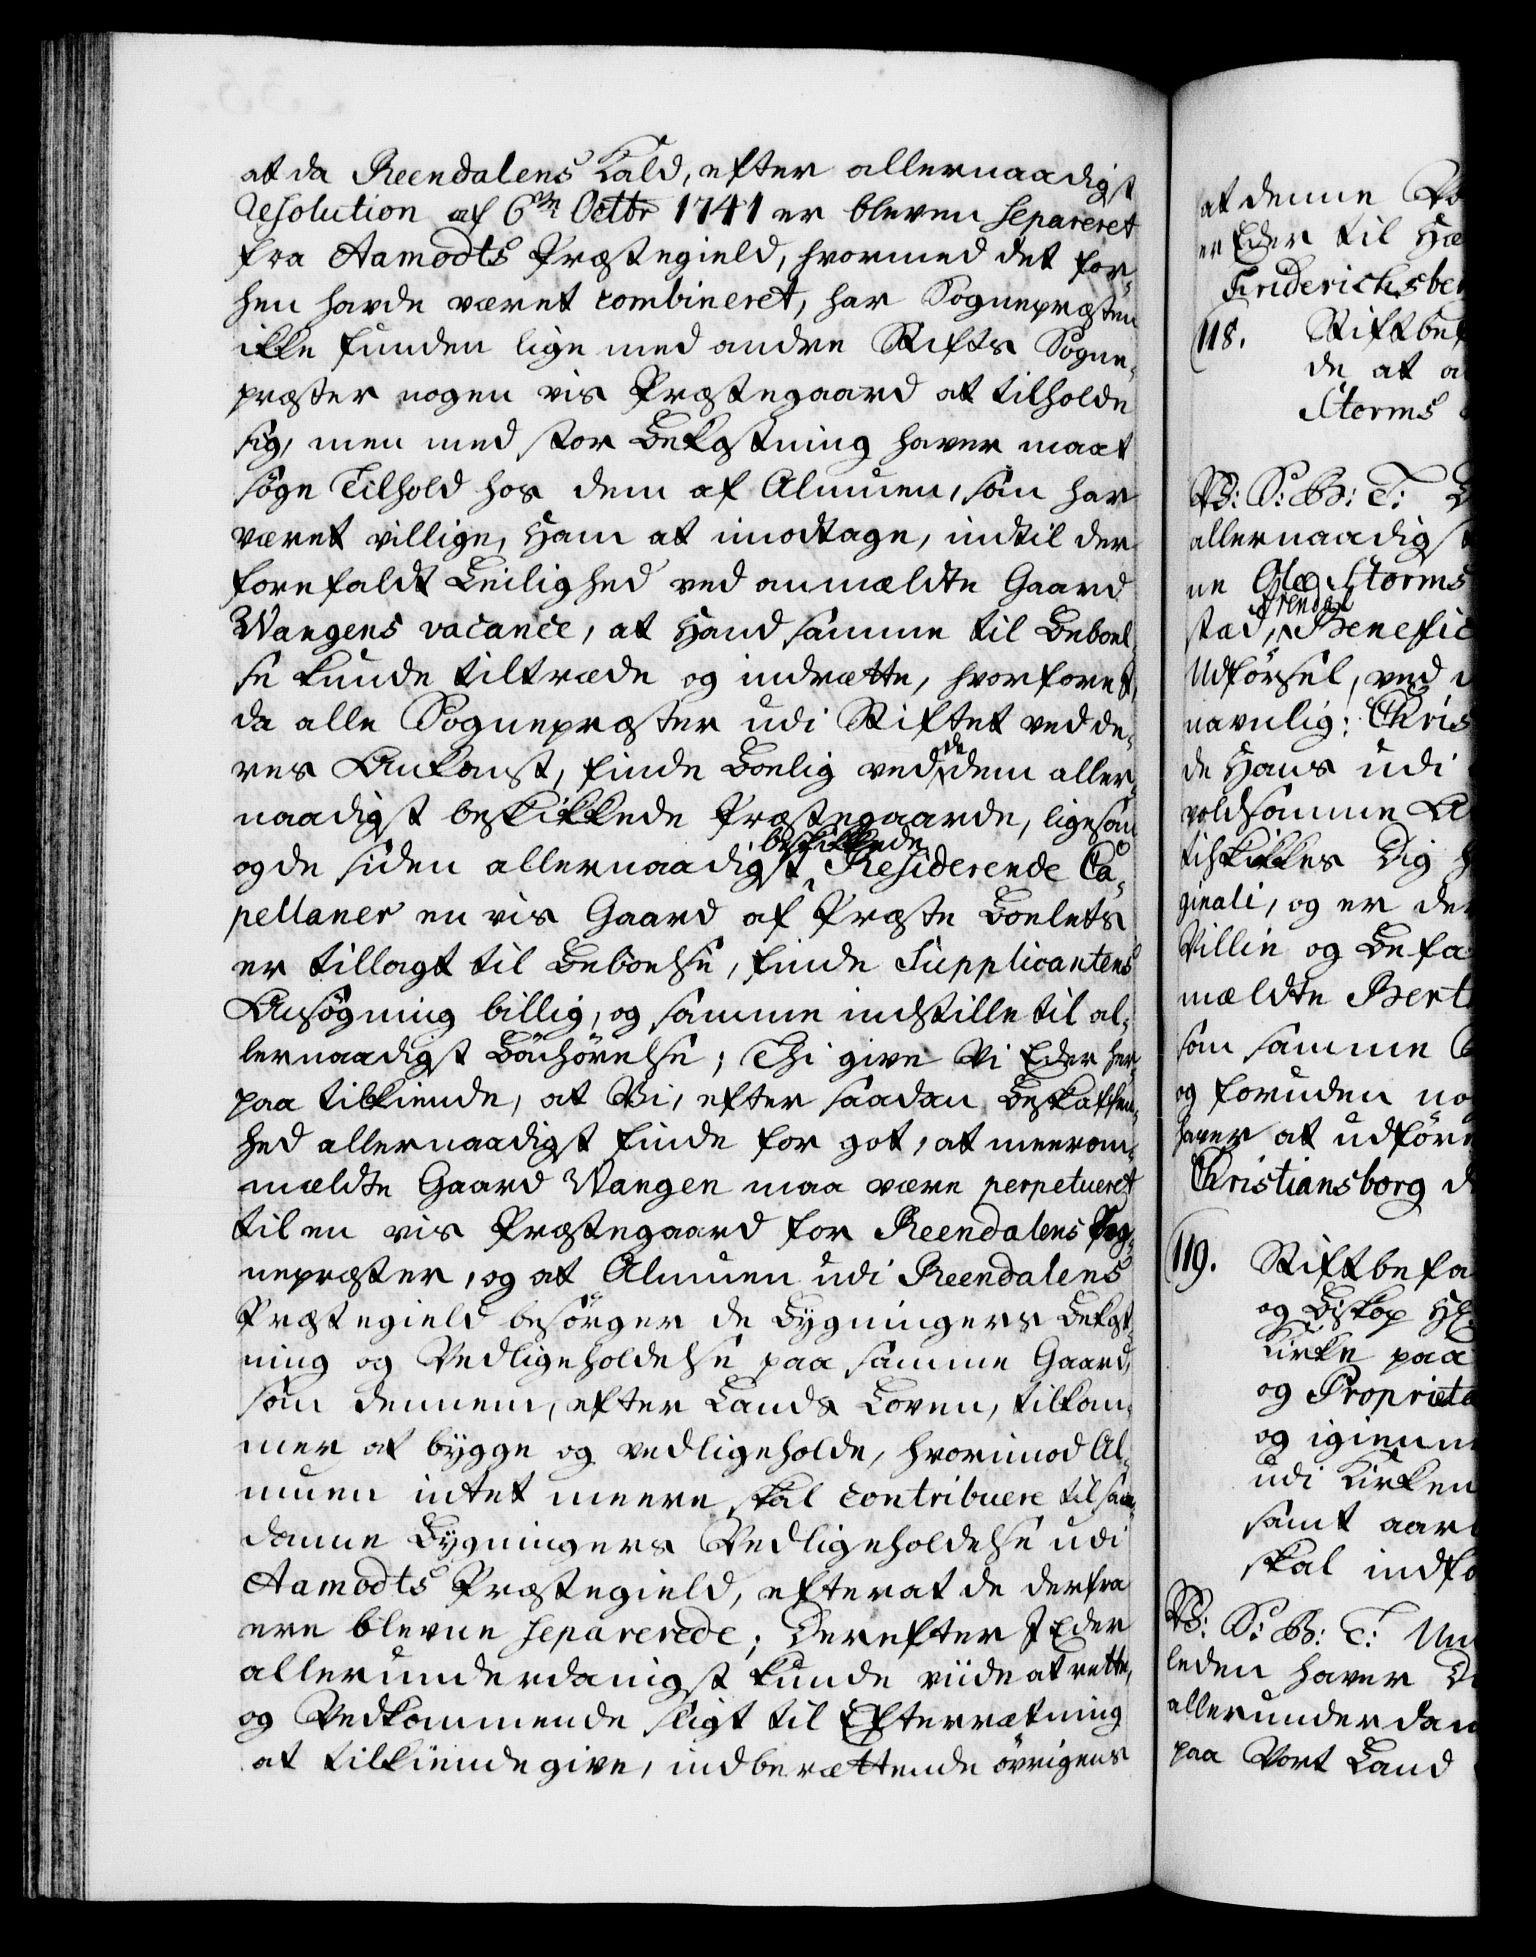 at da Reendalens Kald, efter allernaadigst
Resolution af 6te Octbr 1741 er bleven separeret
fra Aamodts Præstegield, hvormed det for-
hen havde været combineret, har Sognepræsten
ikke funden lige med andre Stifts Sogne-
præster nogen vis Præstegaard at tilholde
sig, men med stor Bekostning haver maat
søge Tilhold hos dem af Almuen, som har
været villige, Ham at imodtage, indtil der
forefaldt Leilighed ved anmældte Gaard
Wangens vacance, at Hand samme til Beboel-
se kunde tiltræde og indrætte, hvorfore I,
da alle Sognepræster udi Stiftet ved de-
res Ankomst, finde Boelig ved de dem aller-
naadigst beskikkede Præstegaarde, ligesom
og de siden allernaadigst beskikkede Residerende Ca-
pellaner en vis Gaard af Præste Boelets
er tillagt til Beboelse, finde Supplicantens
Ansøgning billig, og samme indstille til al-
lernaadigst Bønhørelse; Thi give Vi Eder her-
paa tilkiende, at Vi, efter saadan Beskaffen-
hed allernaadigst finde for got, at meerom-
mældte Gaard Wangen maa være perpetueret
til en vis Præstegaard for Reendalens Sog-
nepræster, og at Almuen udi Reendalens
Præstegield besørger de Bygningers Bekost-
ning og Vedligeholdelse paa samme Gaard,
som dennem, efter Lands Loven, tilkom-
mer at bygge og vedligeholde, hvorimod Al-
muen intet meere skal contribuere til saa-
danne Bygningers Vedligeholdelse udi
Aamodts Præstegield, efterat de derfra
ere blevne separerede; Derefter I Eder
allerunderdanigst kunde viide at rette,
og Vedkommende sligt til Efterrætning
at tilkiendegive, indberættende øvrigens
at denne
er Eder til
Friderichsber
118. Stiftbef
de at
Storms
V: S: G: T:
allernaadigst
ne Ole Storms
Arendal
stad, Benefic
Udførsel, ved
navnlig: Chris
de Hans udi
voldsomme
tilskikkes Dig
ginali, og er der
Villie og Befa
mældte Bert
som samme
og foruden no
haver at udføre
Christiansborg d
119. Stiftbefa
og Biskop
Kirke paa
og Proprieta
og igienn
udi Kirken
samt aarl
skal indfo
V: S: G: T:
leden haver
allerunderdan
paa Vort Land